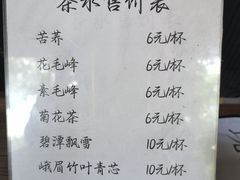 茶水售价表
苦荞 6元/杯
花毛峰 6元/杯
素毛峰 6元/杯
菊花茶 6元/杯
碧潭飘雪 10元/杯
峨眉竹叶青芯 10元/杯